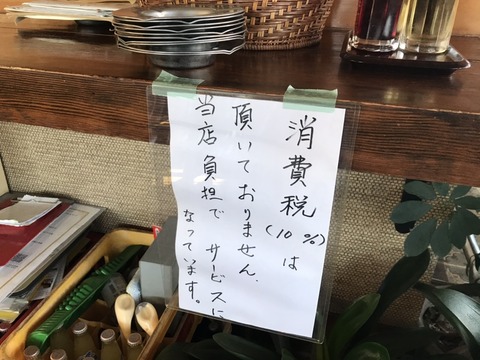 消費税(10%)は
頂いておりません、
当店負担でサービスに
なっています。